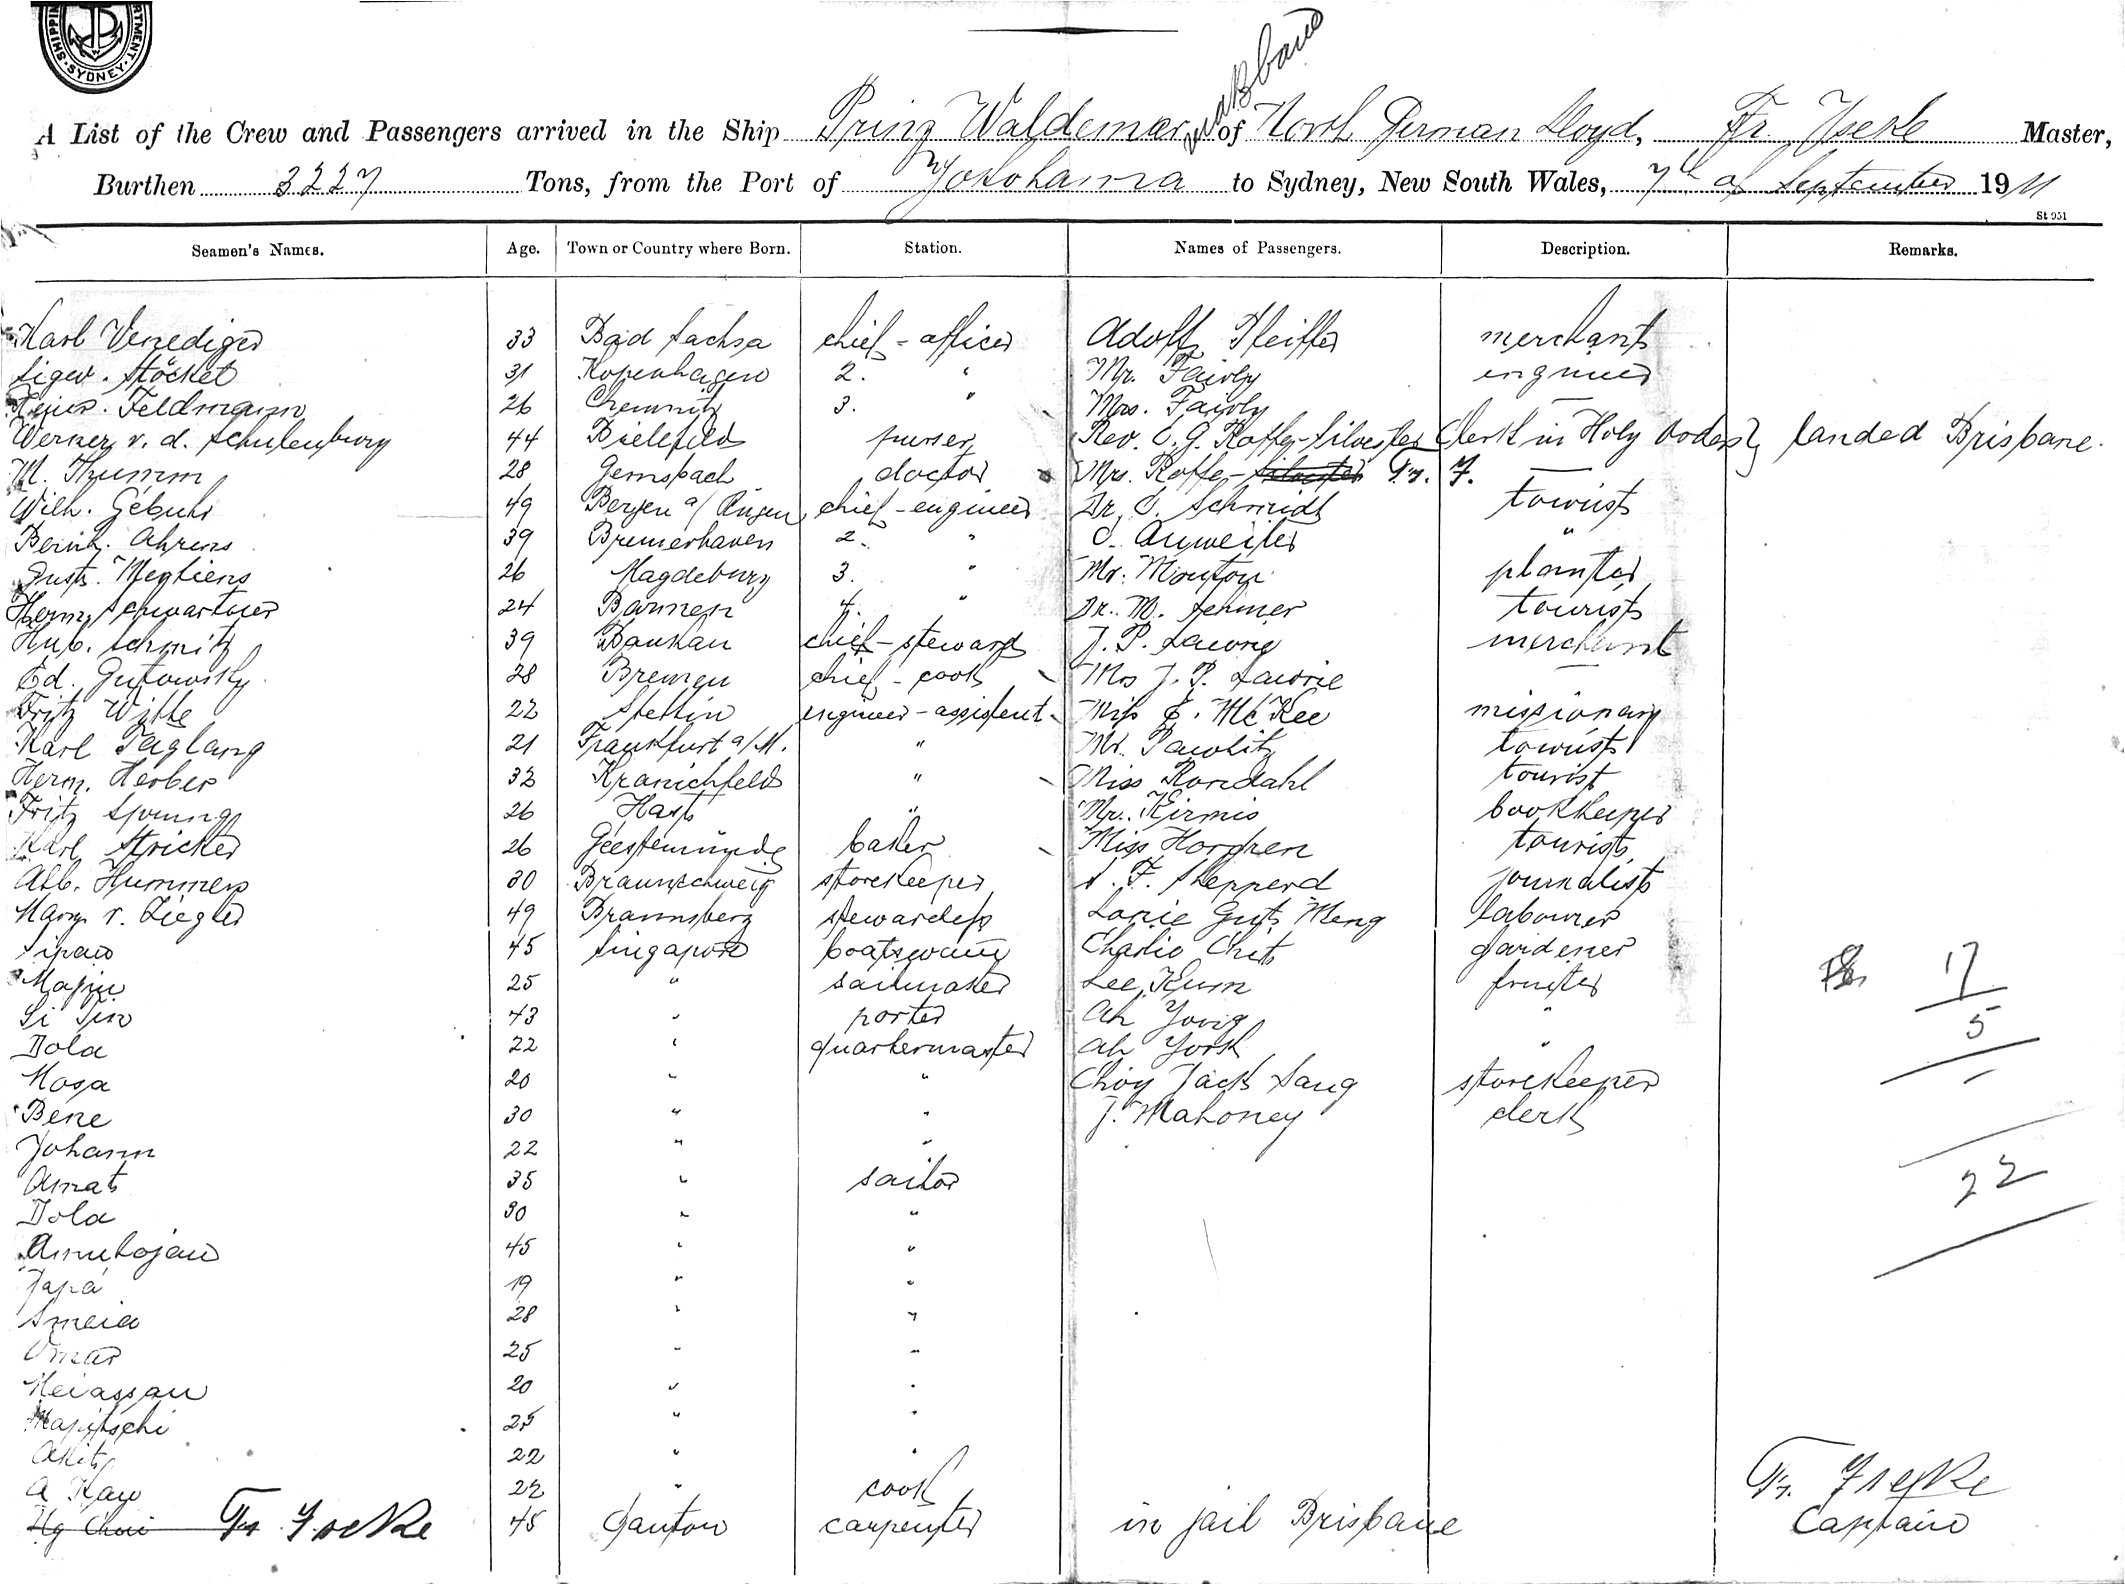 SHIPPING DEPARTMENT. SYDNEY.
Brisbane
A List of the Crew and Passengers arrived in the Ship Prinz Waldemar of North German Lloyd, Fr. Iseke Master,
Burthen 3227 Tons, from the Port of Yokohama to Sydney, New South Wales, 7th of September 1911
St 951
Seamen's Names. Age. Town or Country where Born. Station. Names of Passengers. Description. Remarks.
Karl Venediger 33 Bad Sachsa chief-officer Adolf Pfeiffer merchant
Sigw. Stöckel 31 Kopenhagen 2. " Mr. Fairly engineer
Heinr. Feldmann 26 Chemnitz 3. " Mrs. Fairly —
Werner v. d. Schulenburg 44 Bielefeld purser Rev. E. G. Roffe-Silvester Clerk in Holy Orders } landed Brisbane.
M. Thumm 28 Gernsbach doctor Mrs. Roffe-Silvester Fr. I. —
Wilh. Gebuhr 49 Bergen a/Rügen chief-engineer Dr. O. Schmidt tourist
Bernh. Ahrens 39 Bremerhaven 2. " O. Anweiler "
Gust. Megliens 26 Magdeburg 3. " Mr. Mouton planter
Herm. 24 Barmen 4. " Dr. M. Lehmer tourist
Hub. Schmitz 39 Baukau chief-steward J. P. Lawrie merchant
Ed. Gutowsky 28 Bremen chief-cook Mrs J. P. Lawrie —
Fritz Witte 22 Stettin engineer-assistent Miss E. McKee missionary
Karl Taglang 21 Frankfurt a/M. " Mr. Pawlitz tourist
Herm. Herber 32 Kranichfeld " Miss Rondahl tourist
Fritz Sprung 26 Hast " Mr. Kirmis bookkeeper
Karl Stricker 26 Geestemünde baker Miss Horghen tourist
Alb. Hummer 30 Braunschweig storekeeper A. F. Shepperd journalist
Marg. v. Ziegler 49 Braunsberg stewardess Lorie Gut Meng labourer
Sipan 45 Singapore boatswain Charlie Chet gardener
Majin 25 " sailmaker Lee Kum fruiter
Si Tin 43 " porter Ah Yong "
Dola 22 " quartermaster Ah York "
Mosa 20 " " Choy Jack Sang storekeeper
Bene 30 " " J. Mahoney clerk
Johann 22 " "
Amat 35 " sailor
Dola 30 " "
Amubojan 45 " "
Japa 19 " "
Smeia 28 " "
Omar 25 " "
Meiassan 20 " "
Majitschi 25 " "
Akit 22 " "
A Kay 22 " cook
Ng Choi Fr. Iseke 45 Canton carpenter in jail Brisbane
17
5
22
Fr. Iseke
Captain